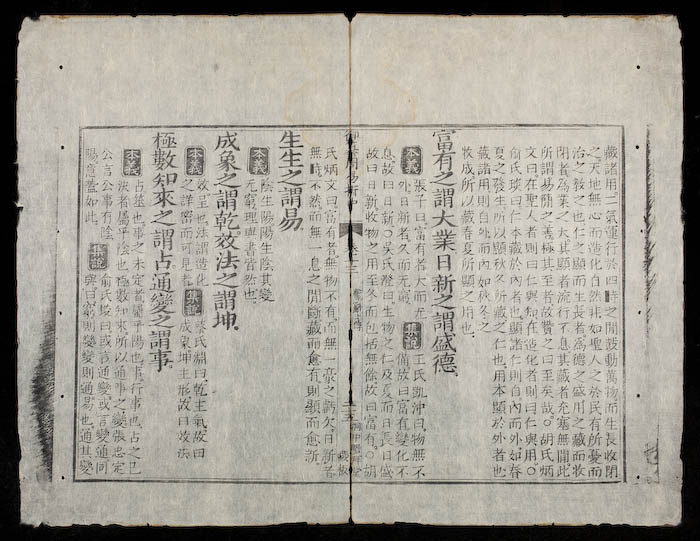 藏諸用二氣運行於四時之間鼓動萬物而生長收閉
之天地無心而造化自然非如聖人之於民有所憂而
治之教之也仁之顯而生長者為德之盛用之藏而收
閉者為業之大其顯者流行不息其藏者充塞無間此
所謂易簡之善極其至者故贊之曰至矣哉○胡氏炳
文曰在聖人者則曰仁與知在造化者則曰仁與用○
俞氏琰曰仁本藏於內者也顯諸仁則自內而外如春
夏之發生所以顯秋冬所藏之仁也用本顯於外者也
藏諸用則自外而內如秋冬之
收成所以藏春夏所顯之用也
富有之謂大業日新之謂盛德
本義 張子曰富有者大而无
外日新者久而無窮
集說 王氏凱沖曰物無不
備故曰富有變化不
息故曰日新○吳氏澄曰生物之仁及夏而日長日盛
故曰日新收物之用至冬而包括無餘故曰富有○胡
卷十三
二十五
氏炳文曰富有者無物不有而無一毫之虧欠日新者
無時不然而無一息之間斷藏而愈有則顯而愈新
生生之謂易
本義 陰生陽陽生陰其變
无窮理與書皆然也
成象之謂乾效法之謂坤
本義 效呈也法謂造化
之詳密而可見者
集說 蔡氏淵曰乾主氣故曰
成象坤主形故曰效法
極數知來之謂占通變之謂事
本義 占筮也事之未定者屬乎陽也事行事也占之已
決者屬乎陰也極數知來所以通事之變張忠定
公言公事有陰
陽意蓋如此
集說 俞氏琰曰或言通變或言變通同
與曰窮則變變則通易也通其變